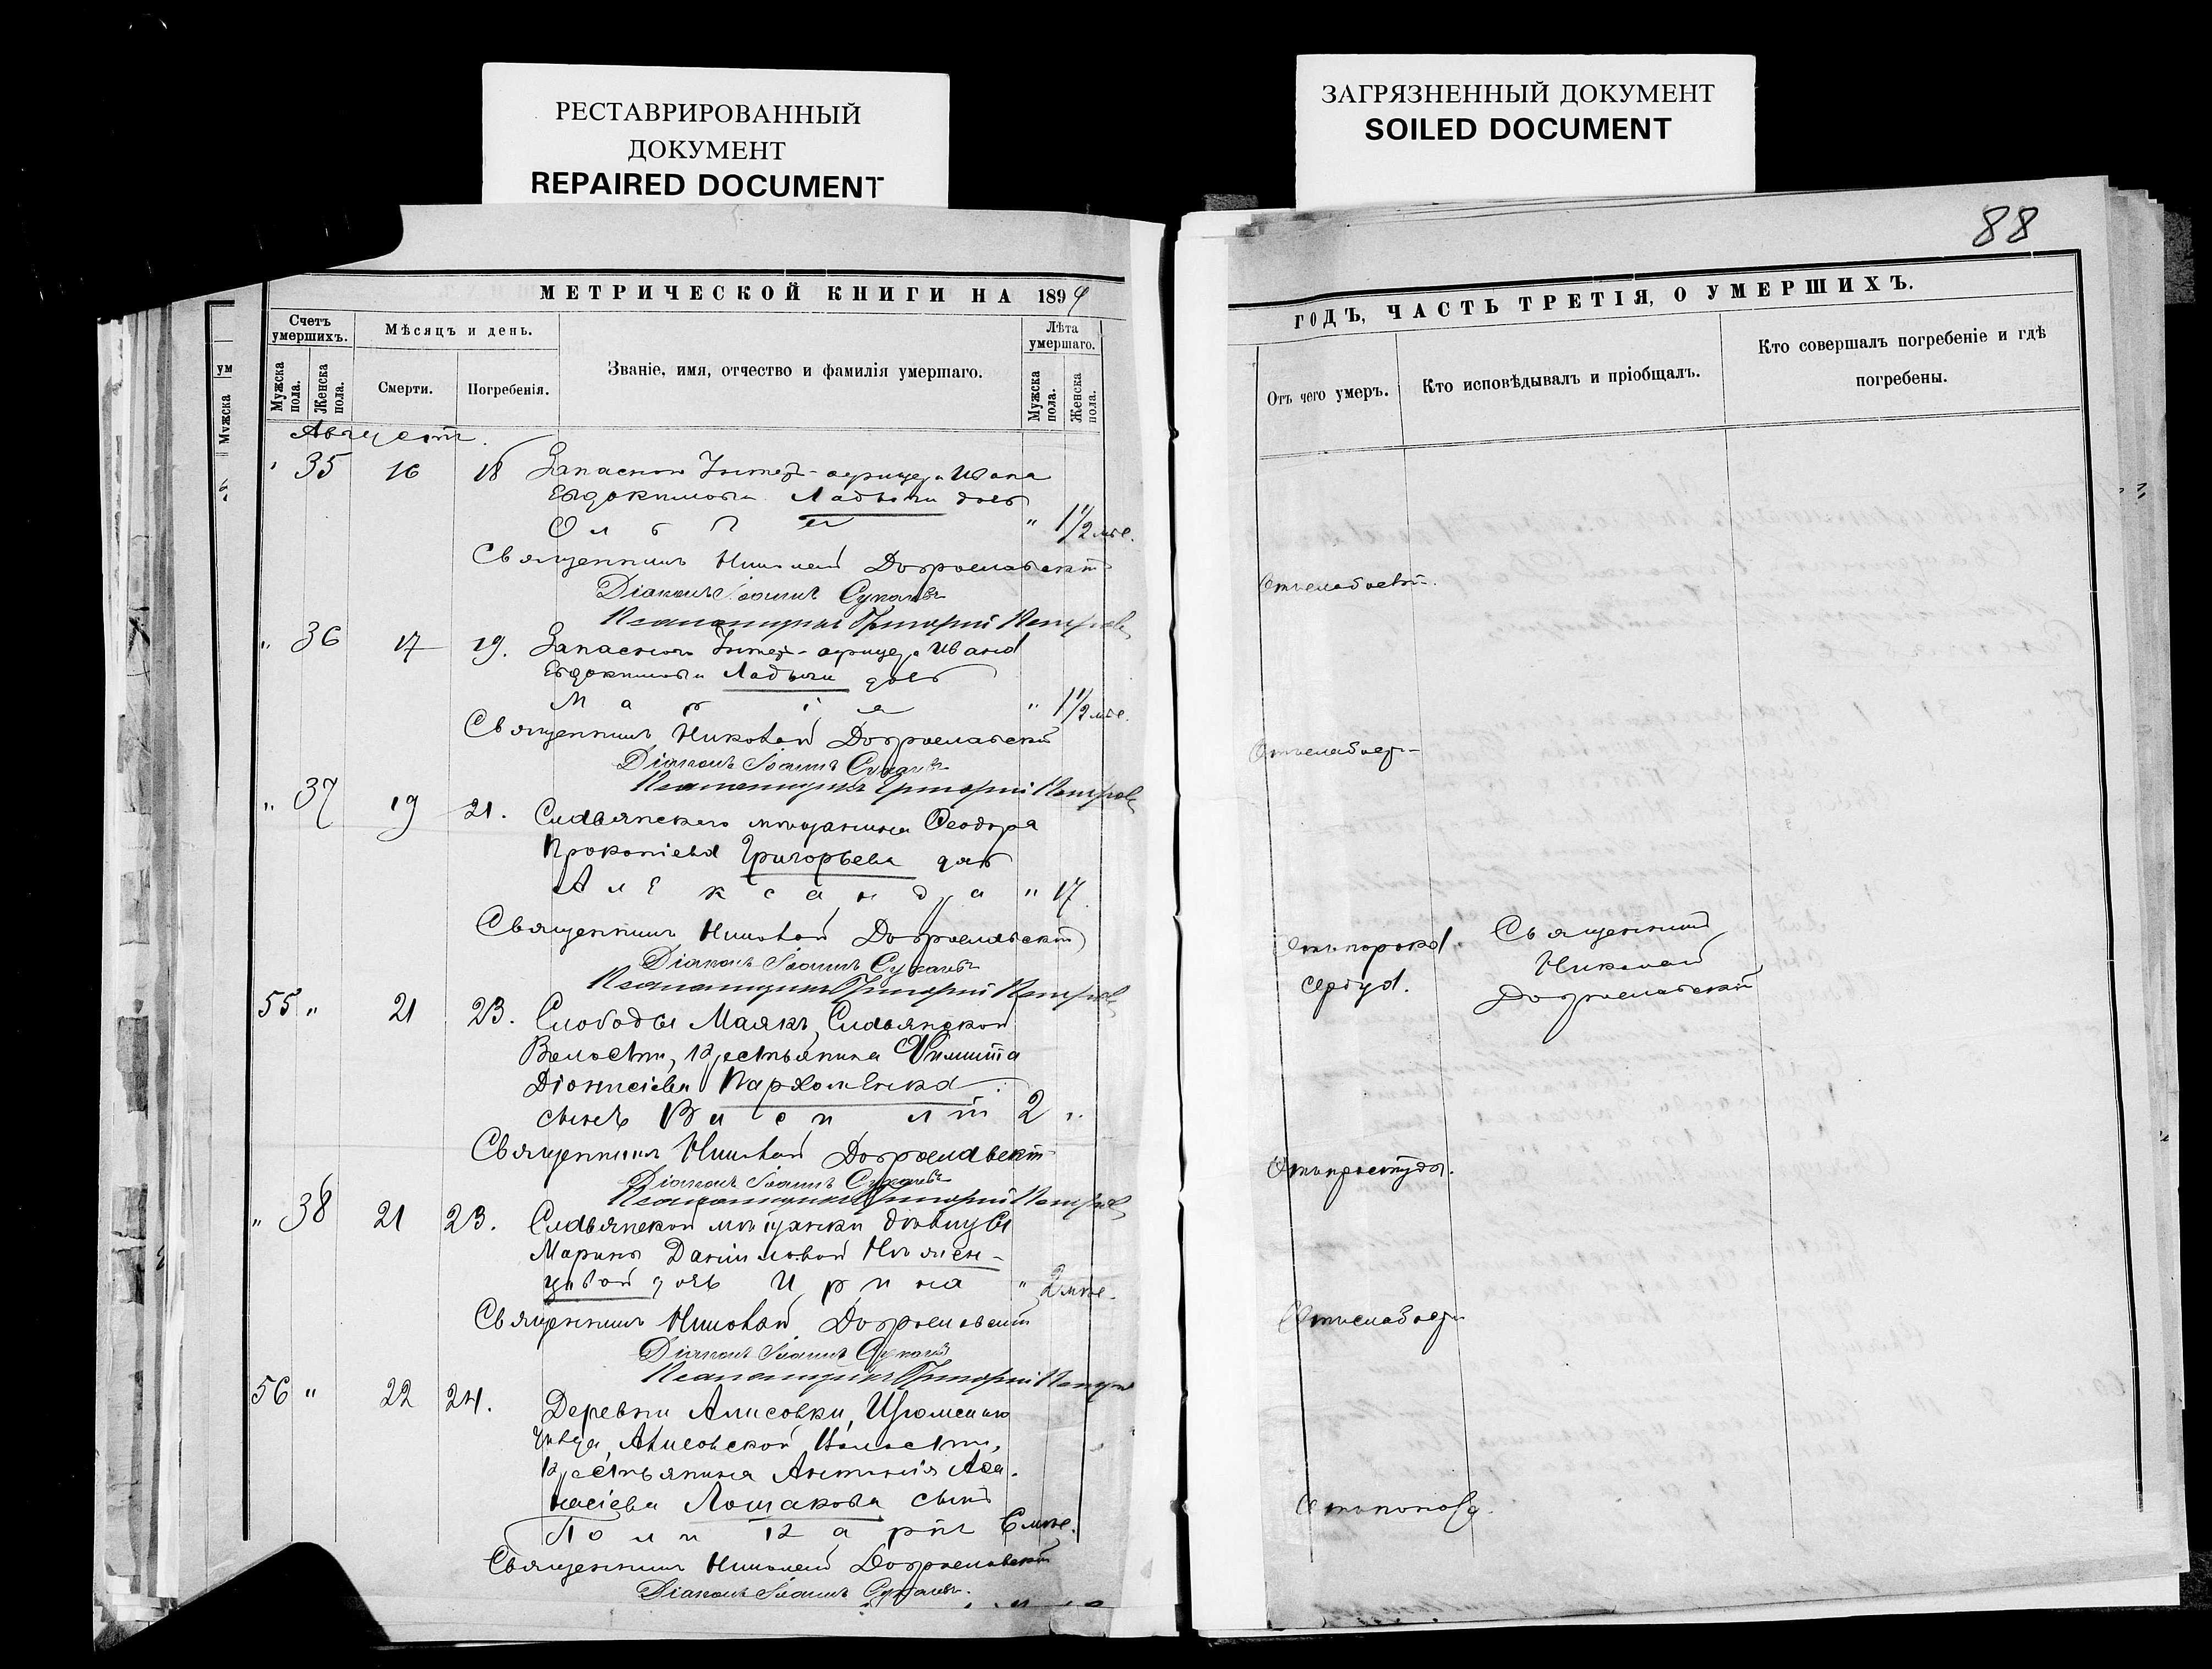 РЕСТАВРИРОВАННЫЙ
ДОКУМЕНТ
REPAIRED DOCUMENT
ЗАГРЯЗНЕННЫЙ ДОКУМЕНТ
SOILED DOCUMENT
88
МЕТРИЧЕСКОЙ КНИГИ НА 1894
ГОДЪ, ЧАСТЬ ТРЕТІЯ, О УМЕРШИХЪ.
Счетъ умершихъ.
Мѣсяцъ и день.
Званіе, имя, отчество и фамилія умершаго.
Лѣта умершаго.
Мужска пола.
Женска пола.
Смерти.
Погребенія.
Мужска пола.
Женска пола.
Отъ чего умеръ.
Кто исповѣдывалъ и пріобщалъ.
Кто совершалъ погребеніе и гдѣ погребены.
ум
Мужска
Августъ.
" 35 16 18 Запасного Унтеръ-офицера Ивана
Евдокимова Ладыги дочь
Ольга " 1 1/2 мѣс.
Священникъ Николай Доброславскій
Діаконъ Іоаннъ
Псаломщикъ Григорій Петровъ
Отъ слабости.
" 36 17 19. Запаснаго Унтеръ-офицера Ивана
Евдокимова Ладыги дочь
Марія " 1 1/2 мѣс.
Священникъ Николай Доброславскій
Діаконъ Іоаннъ
Псаломщикъ Григорій Петровъ
Отъ слабости
" 37 19 21. Славянскаго мѣщанина Ѳеодора
Прокопіева Григорьева дочь
Александра " 17.
Священникъ Николай Доброславскій
Діаконъ Іоаннъ
Псаломщикъ Григорій Петровъ
Отъ порока
сердца.
Священникъ
Николай
Доброславскій
55 " 21 23. Слободы Маякъ, Славянской
Волости, крестьянина Филиппа
Діонисіева Пархоменка
сынъ Василій 2 "
Священникъ Николай Доброславскій
Діаконъ Іоаннъ
Псаломщикъ Григорій Петровъ
Отъ простуды.
" 38 21 23. Славянской мѣщанки дѣвицы
Марины Даниловой
цовой дочь Ирина " 2 мѣс.
Священникъ Николай Доброславскій
Діаконъ Іоаннъ
Псаломщикъ Григорій Петровъ
Отъ слабости
56 " 22 24. Деревни Алисовки, Изюмскаго
уѣзда, Алисовской Волости,
крестьянина Антонія Аѳа-
насіева Лошакова сынъ
Поликарпъ 6 мѣс.
Священникъ Николай Доброславскій
Діаконъ Іоаннъ
Отъ поноса.